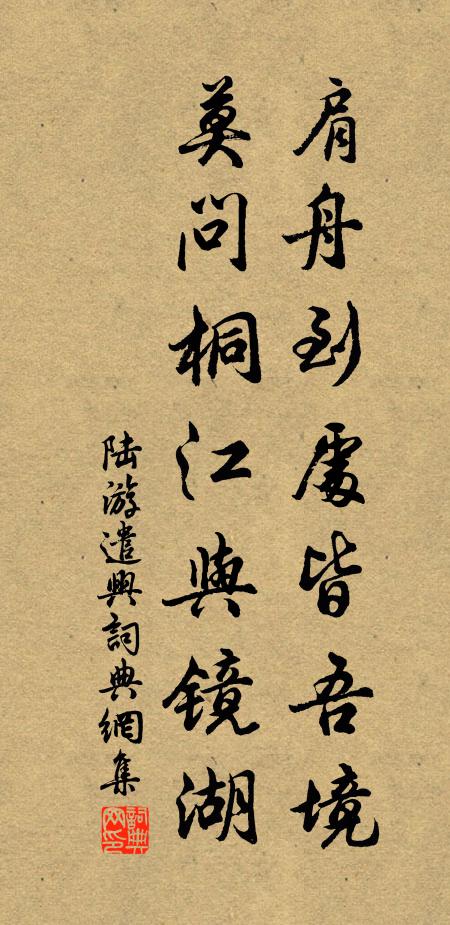 肩舟到處皆吾境
莫問桐江與镜湖
陆游遣興詞典網集
詞典网印